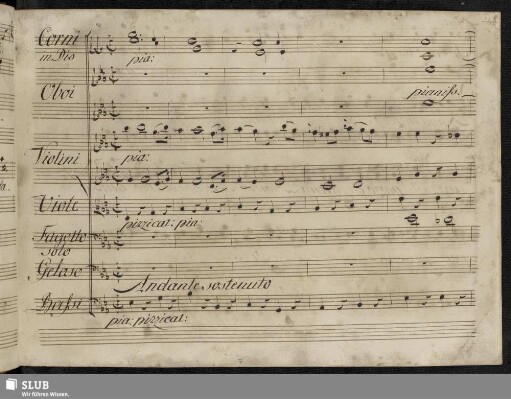 Corni
in Dis
pia:
Oboi
pianiss.
Violini
pia:
Viole
pizzicat: pia:
Fagotto
Solo
Geloso
Andante sostenuto
Bassi
pia: pizzicat:
SLUB
Wir führen Wissen.